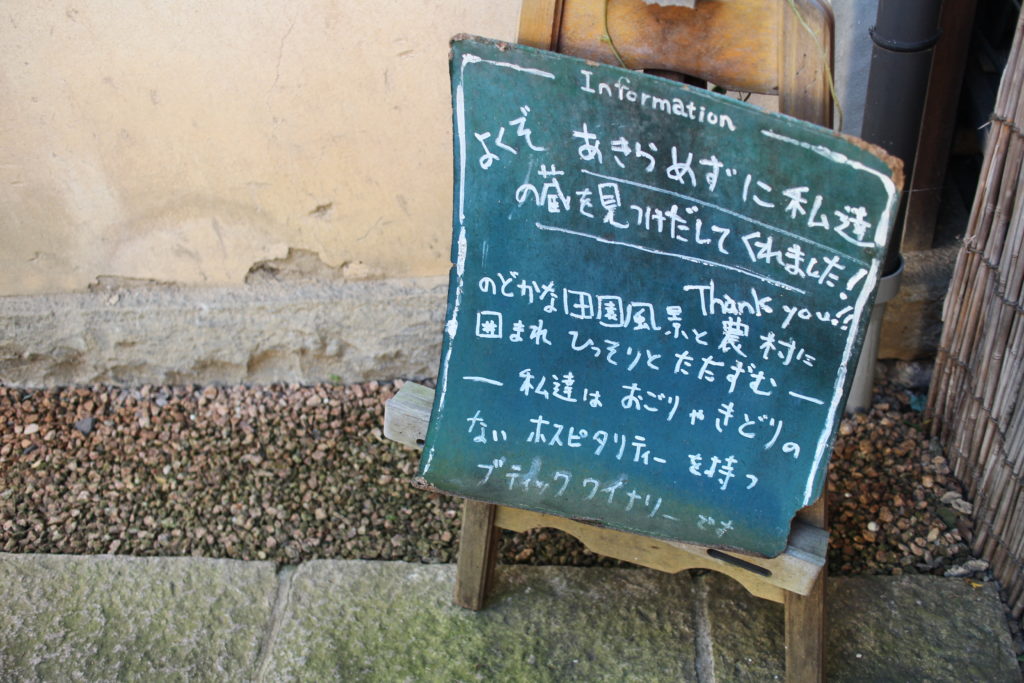 Information
よくぞ あきらめずに私達
の蔵を見つけだしてくれました!
Thank you!!
のどかな田園風景と農村に
囲まれ ひっそりとたたずむ—
— 私達は おごりやきどりの
ない ホスピタリティー を持つ
ブティックワイナリーです